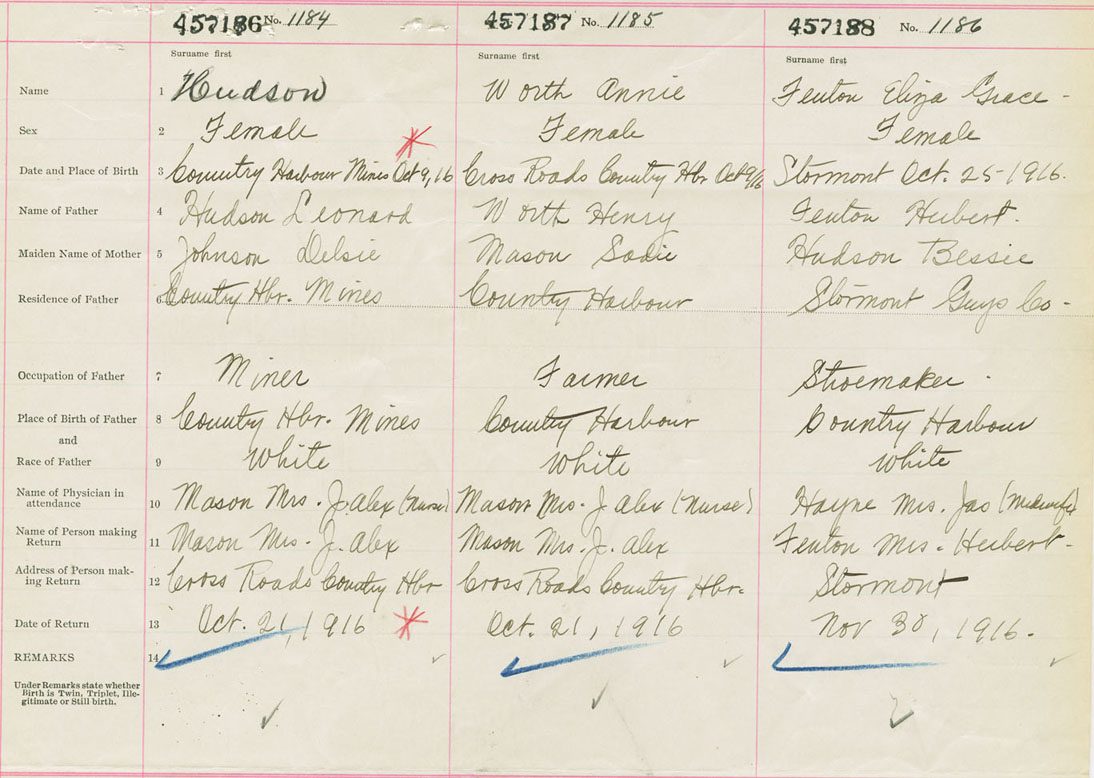 457186 No. 1184 457187 No. 1185 457188 No. 1186
Surname first Surname first Surname first
Name 1 Hudson Worth Annie Fenton Eliza Grace -
Sex 2 Female Female Female
Date and Place of Birth 3 Country Harbour Mines Oct 9, 16 Cross Roads Country Hbr Oct 9/16 Stormont Oct. 25-1916.
Name of Father 4 Hudson Leonard Worth Henry Fenton Hubert.
Maiden Name of Mother 5 Johnson Delsie Mason Sadie Hudson Bessie
Residence of Father 6 Country Hbr. Mines Country Harbour Stormont Guys Co -
Occupation of Father 7 Miner Farmer Shoemaker .
Place of Birth of Father 8 Country Hbr. Mines Country Harbour Country Harbour
and
Race of Father 9 White White White
Name of Physician in
attendance 10 Mason Mrs. J. Alex (Nurse) Mason Mrs. J Alex (Nurse) Hayne Mrs. Jas (Midwife)
Name of Person making
Return 11 Mason Mrs. J. Alex Mason Mrs. J. Alex Fenton Mrs. Hubert -
Address of Person mak-
ing Return 12 Cross Roads Country Hbr Cross Roads Country Hbr. Stormont
Date of Return 13 Oct. 21, 1916 Oct. 21, 1916 Nov 30, 1916.
REMARKS 14
Under Remarks state whether
Birth is Twin, Triplet, Ille-
gitimate or Still birth.